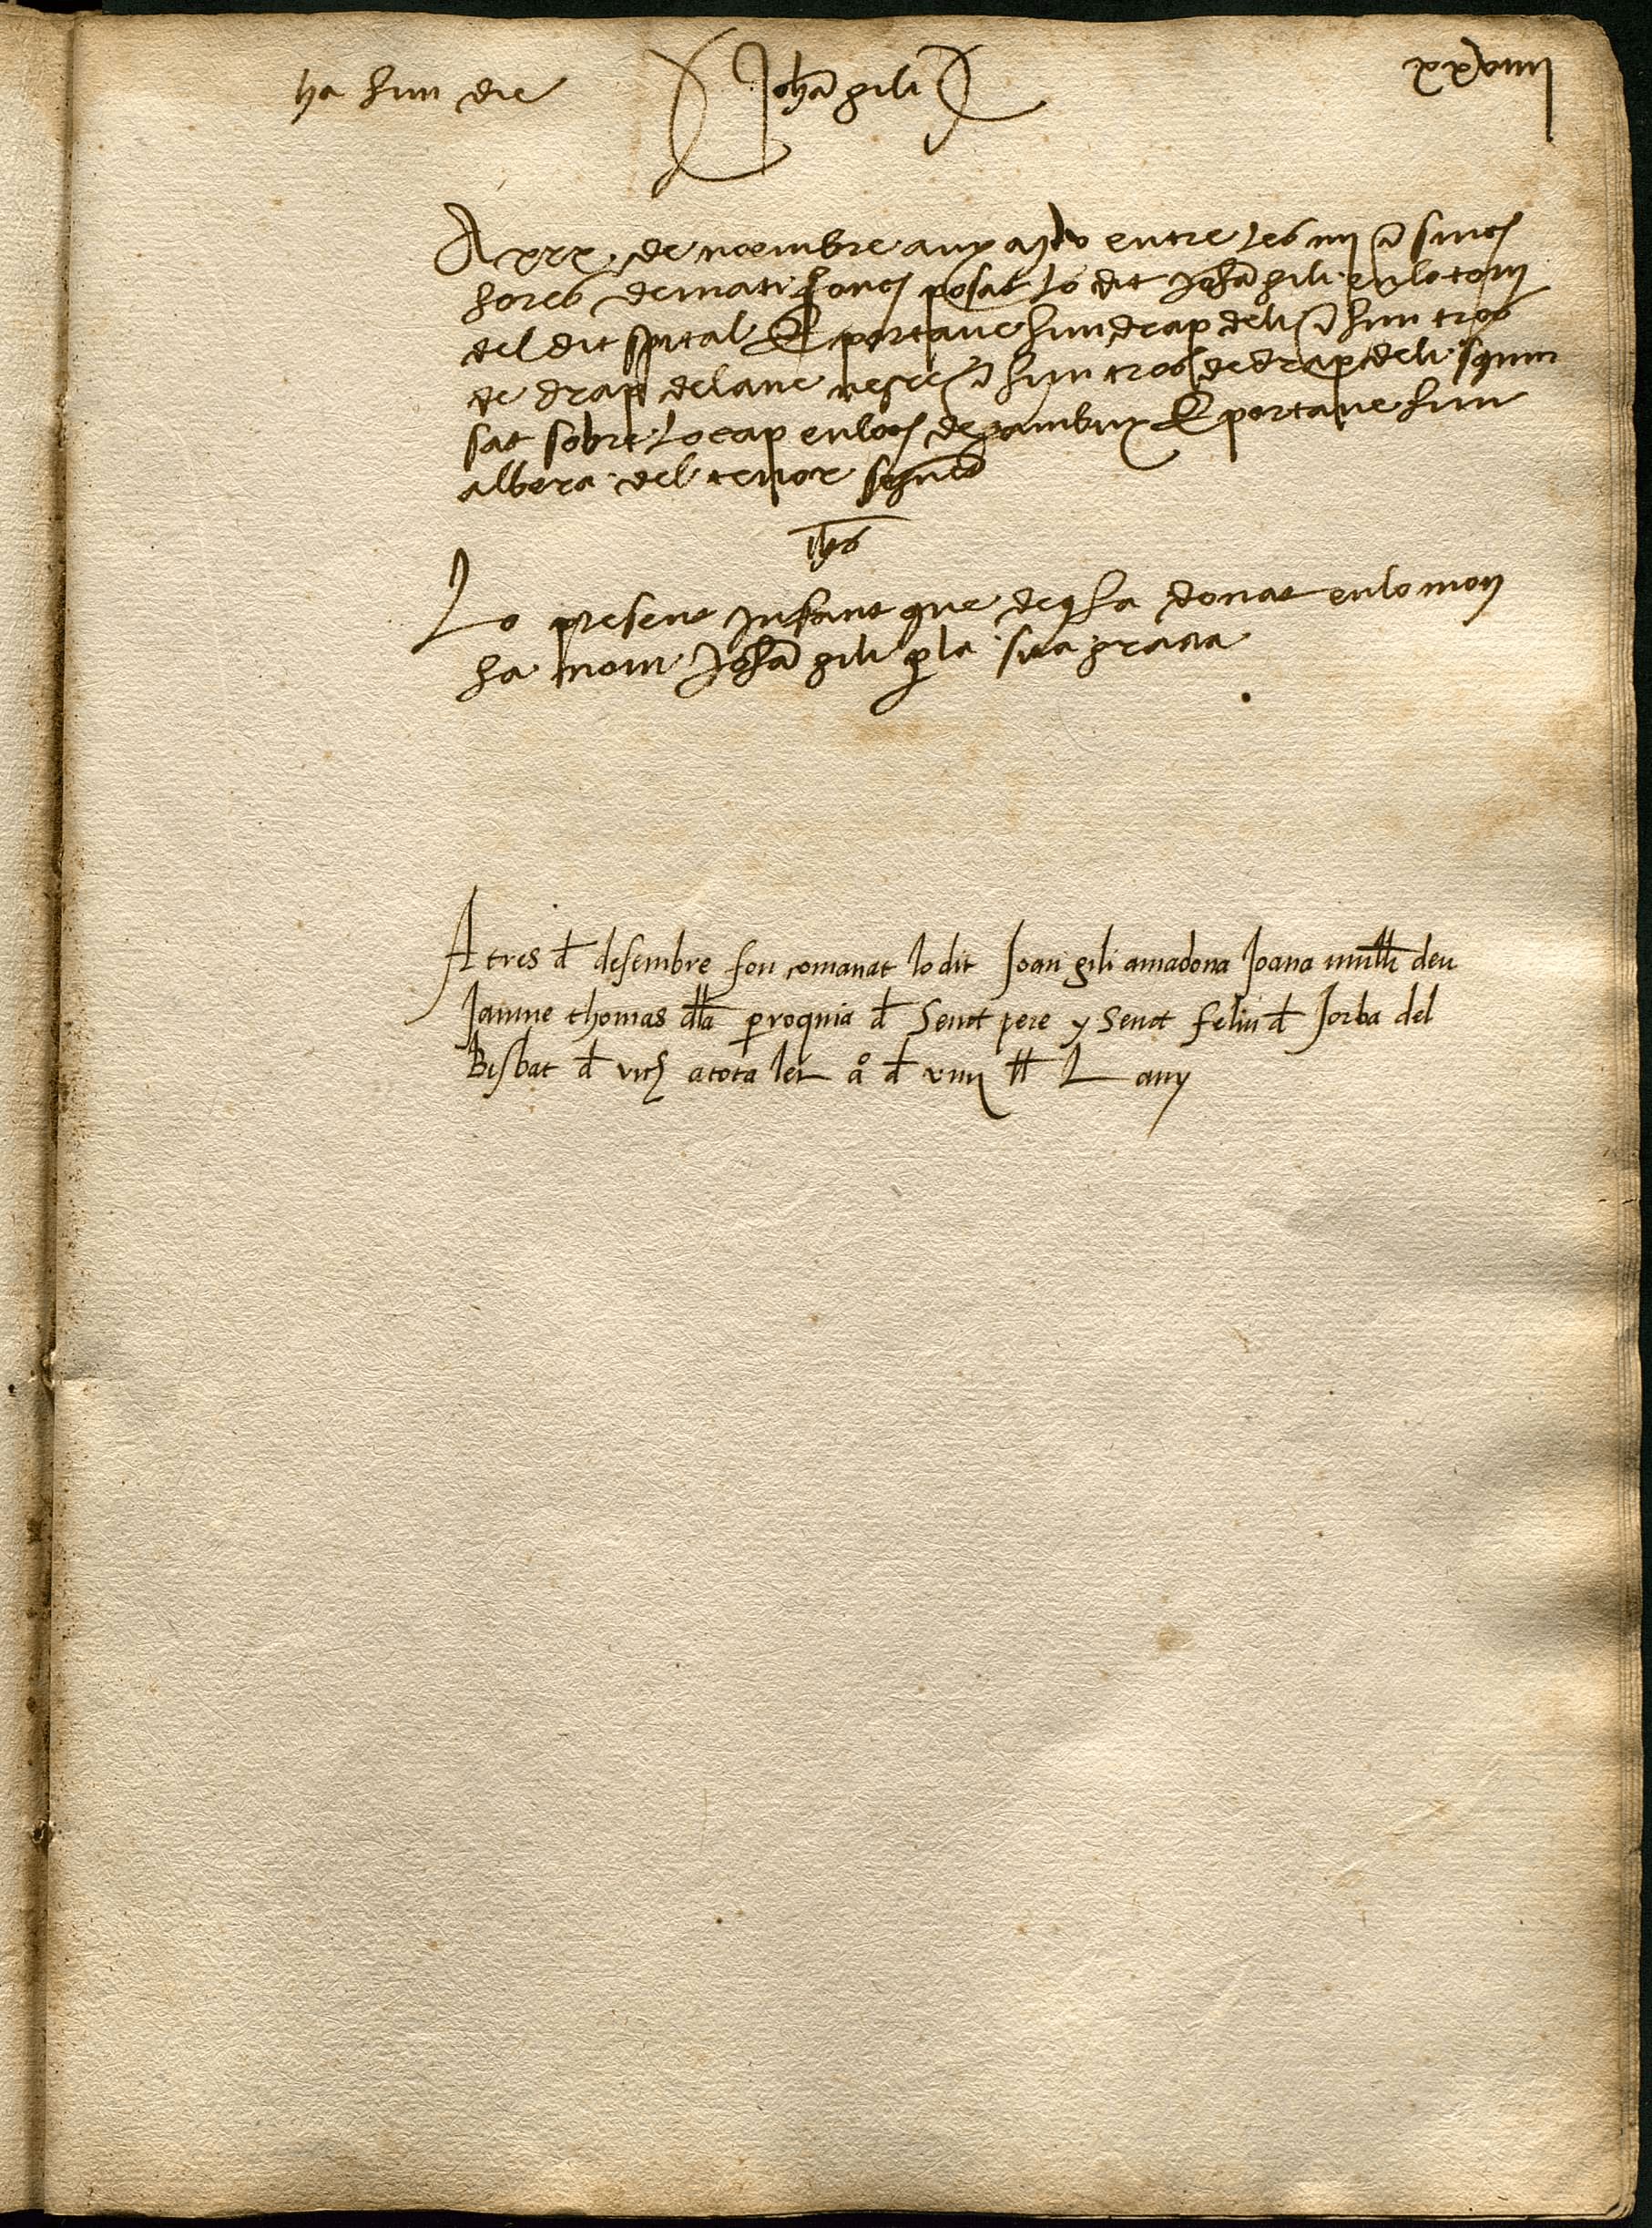 ha hun die
Johã gili
xxxviiij
A xxx de noembre any entre les iiij e sinch
hores de mati fonch posat lo dit Johã gili en lo torn
del dit spital E portave hun drap de li e hun tros
de drap de lane negre e hun tros de drap de li squin
sat sobre lo cap en loch de E portave hun
albera del tenor seguẽt
Ihs
Lo present Infant que deu ha donat en lo mon
ha nom Johã gili p la sua gracia
A tres d̶ desembre fou comanat lo dit Joan gili a madona Joana mullr̃ den
Jaume thomas dl̃a perroquia d̶ Senct pere y Senct feliu d̶ Jorba del
Bisbat d̶ vich a tota let a d̶ viiij ll L any